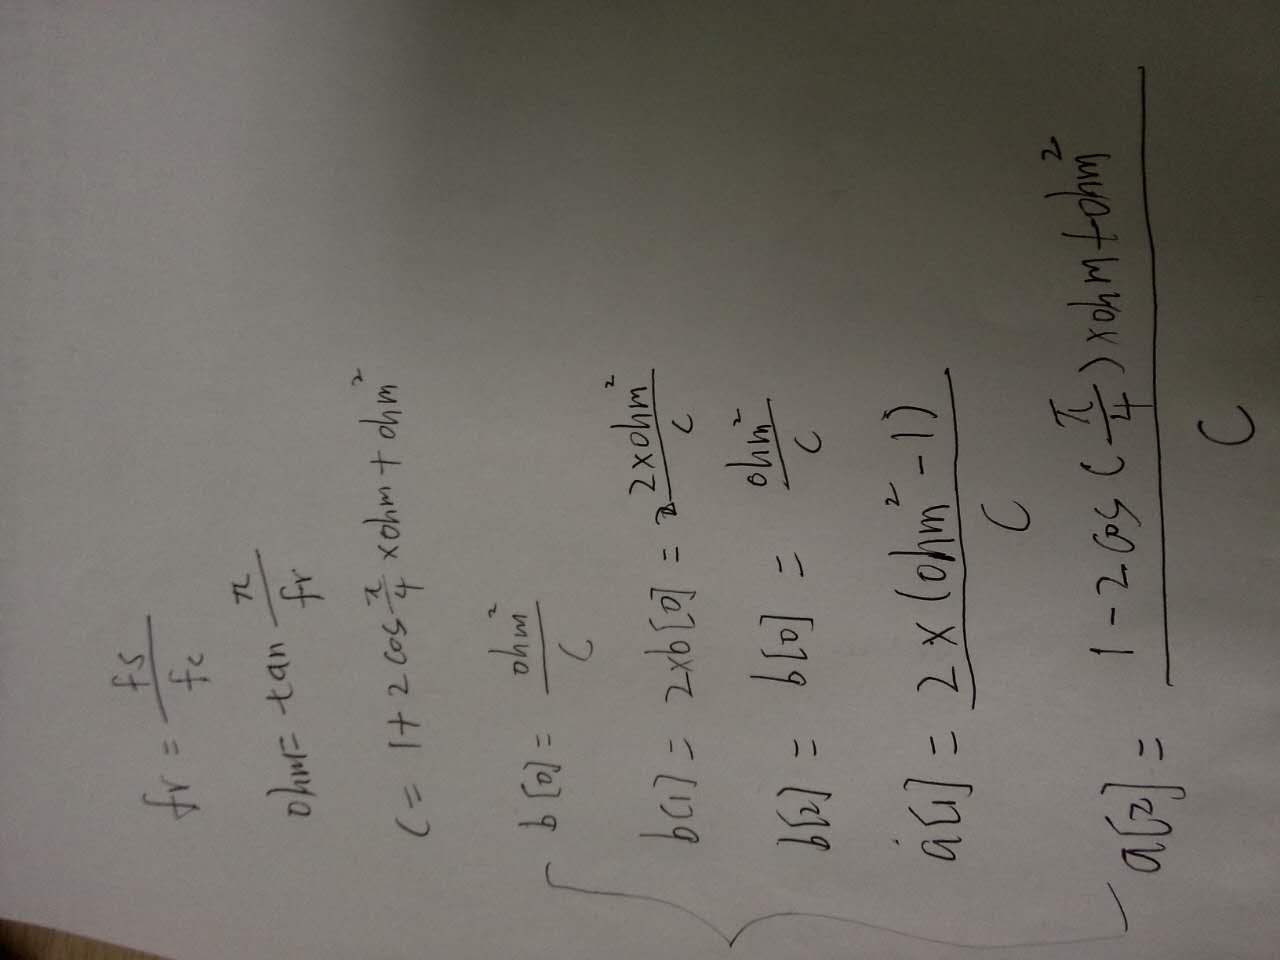 fr = fs/fc
ohm = tan π/fr
c = 1 + 2 cos π/4 × ohm + ohm²
b[0] = ohm²/c
b[1] = 2×b[0] = 2×ohm²/c
b[2] = b[0] = ohm²/c
a[1] = 2×(ohm² - 1)/c
a[2] = 1 - 2 cos(π/4)×ohm + ohm²/c